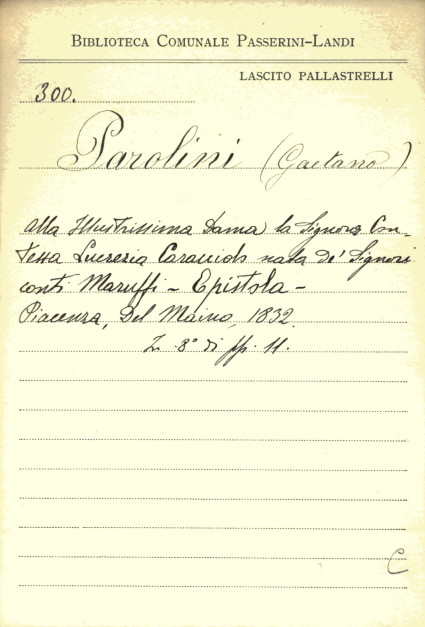 BIBLIOTECA COMUNALE PASSERINI-LANDI
LASCITO PALLASTRELLI
300.
Parolini (Gaetano)
Alla Illustrissima Dama la Signora Con-
tessa Lucrezia nata de' Signori
conti Maruffi - Epistola -
Piacenza, Del Maino, 1832.
In 8° di pp. 11.
C